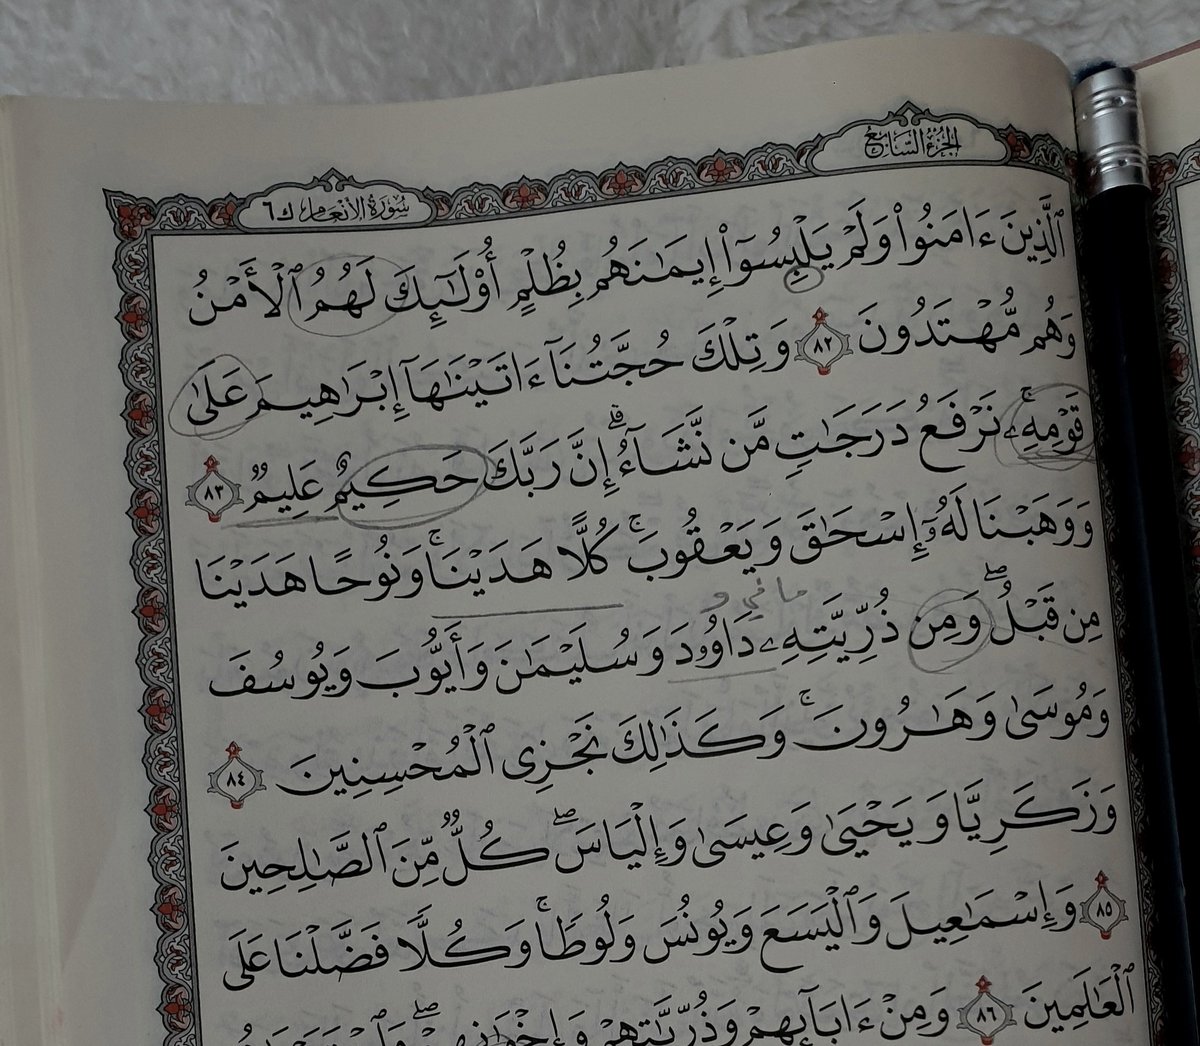 الجزء السابع
سورة الأنعام ك ٦
ٱلَّذِينَ ءَامَنُوا۟ وَلَمْ يَلْبِسُوٓا۟ إِيمَـٰنَهُم بِظُلْمٍ أُو۟لَـٰٓئِكَ لَهُمُ ٱلْأَمْنُ
وَهُم مُّهْتَدُونَ ٨٢ وَتِلْكَ حُجَّتُنَآ ءَاتَيْنَـٰهَآ إِبْرَٰهِيمَ عَلَىٰ
قَوْمِهِۦۚ نَرْفَعُ دَرَجَـٰتٍ مَّن نَّشَآءُۗ إِنَّ رَبَّكَ حَكِيمٌ عَلِيمٌ ٨٣
وَوَهَبْنَا لَهُۥٓ إِسْحَـٰقَ وَيَعْقُوبَۚ كُلًّا هَدَيْنَاۚ وَنُوحًا هَدَيْنَا
ما في و
مِن قَبْلُۖ وَمِن ذُرِّيَّتِهِۦ دَاوُۥدَ وَسُلَيْمَـٰنَ وَأَيُّوبَ وَيُوسُفَ
وَمُوسَىٰ وَهَـٰرُونَۚ وَكَذَٰلِكَ نَجْزِى ٱلْمُحْسِنِينَ ٨٤
وَزَكَرِيَّا وَيَحْيَىٰ وَعِيسَىٰ وَإِلْيَاسَۖ كُلٌّ مِّنَ ٱلصَّـٰلِحِينَ
٨٥ وَإِسْمَـٰعِيلَ وَٱلْيَسَعَ وَيُونُسَ وَلُوطًاۚ وَكُلًّا فَضَّلْنَا عَلَى
ٱلْعَـٰلَمِينَ ٨٦ وَمِنْ ءَابَآئِهِمْ وَذُرِّيَّـٰتِهِمْ وَإِخْوَٰنِهِمْۖ